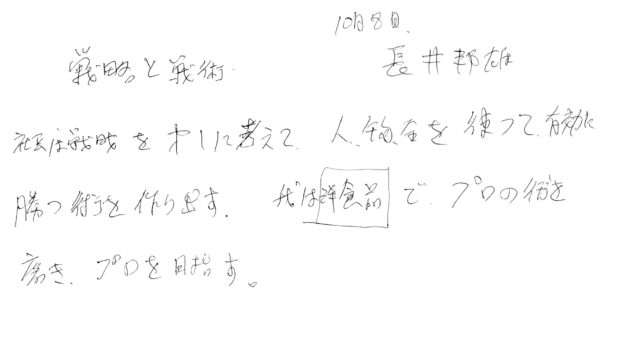 10月8日.
戦略と戦術
長井邦雄
社長は戦略を才1に考えて、人、物、金を使って、有効に
勝つ術を作り出す.
我は洋食品で、プロの術を
磨き、プロを目指す。